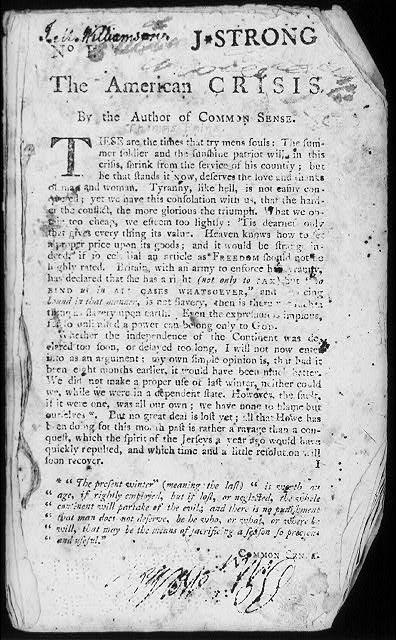 J. A. Williamson
No I. J. STRONG
The American CRISIS.
By the Author of COMMON SENSE.
THESE are the times that try mens souls: The sum-
mer soldier and the sunshine patriot will, in this
crisis, shrink from the service of his country; but
he that stands it NOW, deserves the love and thanks
of man and woman. Tyranny, like hell, is not easily con-
quered; yet we have this consolation with us, that the hard-
er the conflict, the more glorious the triumph. What we ob-
tain too cheap, we esteem too lightly: 'Tis dearness only
that gives every thing its value. Heaven knows how to set
a proper price upon its goods; and it would be strange in-
deed, if so celestial an article as FREEDOM should not be
highly rated. Britain, with an army to enforce her tyranny,
has declared that she has a right (not only to TAX) but "TO
BIND us in ALL CASES WHATSOEVER," and if being
bound in that manner, is not slavery, then is there not such a
thing as slavery upon earth. Even the expression is impious,
for so unlimited a power can belong only to GOD.
Whether the independence of the Continent was de-
clared too soon, or delayed too long, I will not now enter
into as an argument; my own simple opinion is, that had it
been eight months earlier, it would have been much better.
We did not make a proper use of last winter, neither could
we, while we were in a dependent state. However, the fault,
if it were one, was all our own; we have none to blame but
ourselves *. But no great deal is lost yet; all that Howe has
been doing for this month past is rather a ravage than a con-
quest, which the spirit of the Jerseys a year ago would have
quickly repulsed, and which time and a little resolution will
soon recover. I
* "The present winter" (meaning the last) "is worth an
" age, if rightly employed, but if lost, or neglected, the whole
" continent will partake of the evil; and there is no punishment
" that man does not deserve, be he who, or what, or where he
" will, that may be the means of sacrificing a season so precious
" and useful."
COMMON SENSE.